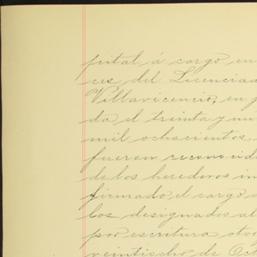 pital á cargo en
ces del Licencia
Villavicencio, en
da el treinta y un
mil ochocientos
fueron reconocid
de los herederos in
firmado el cargo
los designados al
por escritura oto
veintiocho de